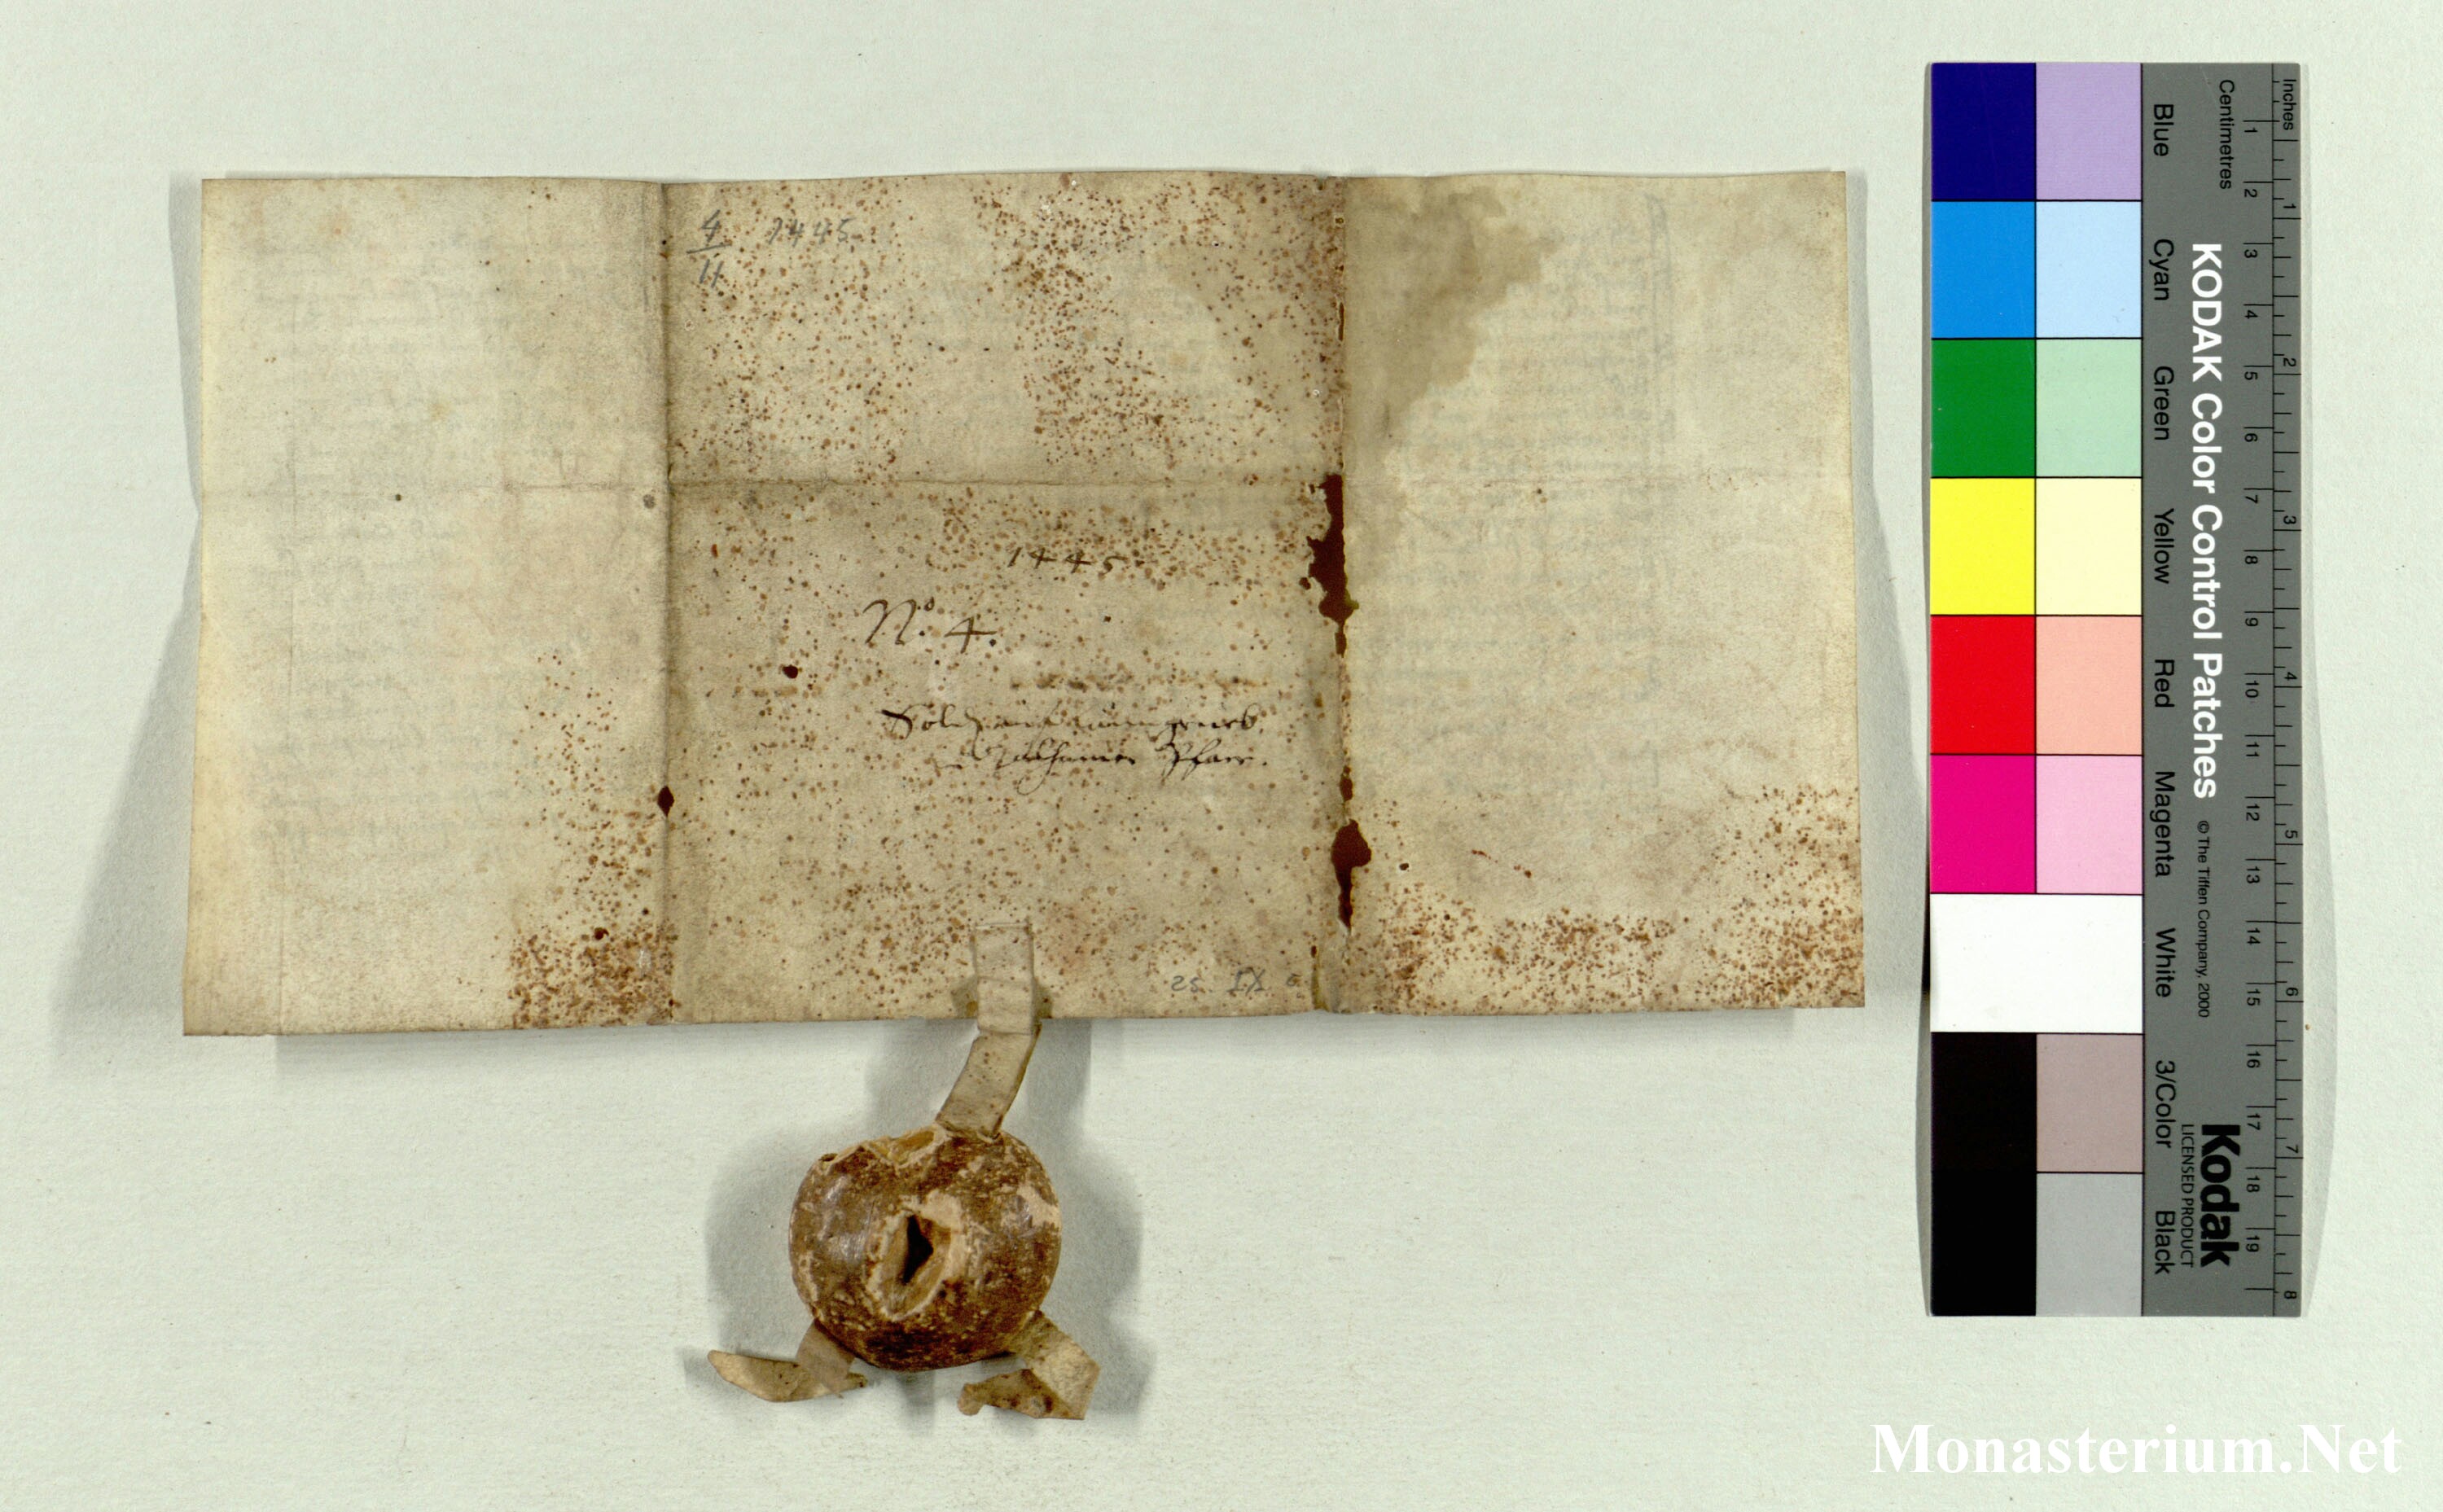 4 1445
11
1445
No. 4.
Pfarr.
25. IX
Inches
Centimetres
1 2 3 4 5 6 7 8 9 10 11 12 13 14 15 16 17 18 19
1 2 3 4 5 6 7 8
KODAK Color Control Patches © The Tiffen Company, 2000
Kodak
LICENSED PRODUCT
Blue Cyan Green Yellow Red Magenta White 3/Color Black
Monasterium.Net